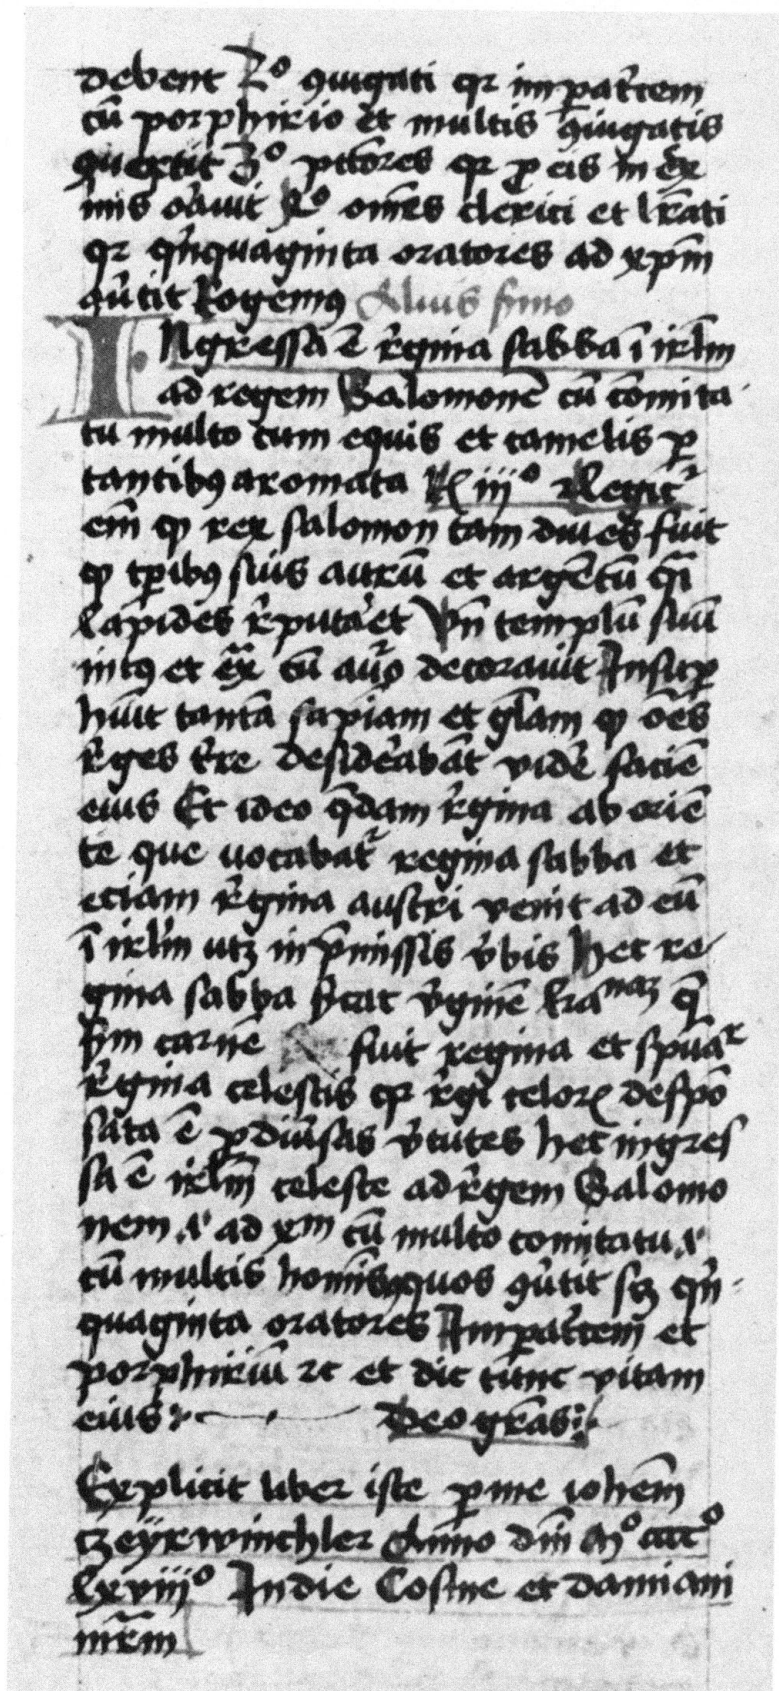 debent Rͦ ꝯiugati qꝛ imp̄at̓cem
cū porphirio et multis ꝯiugatis
ꝯuertit 3ͦ pctōres qꝛ ꝓ eis in ext̓
mis orauit ͦ om̄es clerici et lr̄ati
qꝛ qn̓quaginta oratores ad xp̄m
ꝯu̓tit Rogemꝯ Alius ſermo
INgreſſa ē r̓gina ſabba ī irl̄m
ad regem Salomonē cū comita
tu multo cum equis et camelis p̱
tantibꝯ aromata Rꝭ iiiͦ legit᷑
em̄ ꝙ rex ſalomon tam diues fuit
ꝙ tp̄ibꝯ ſuis aurū et argētū qᷓi
lapides r̓putar̓et Vn̄ templū ſuū
intꝯ et ext̓ cū auro decorauit Inſup̱
huit tantā ſapīam et gl̄am ꝙ oēs
r̓ges t̓re deſider̓abāt vider̓ faciē
eius Et ideo qᷓdam r̓gina ab oriē
te que vocabat᷑ regina ſabba et
eciam r̓gina auſtri venit ad eū
ī irl̄m utꝫ in p̄miſſis v̓bis Hec re
gina ſabba ſig̓t v̓ginē kᷓa naꝫ q̄
ẜm carnē fuit regina et ſpūaꝉr
r̓gina celeſtis qꝛ r̓gi celoꝝ deſpō
ſata ē ꝑ diu̓ſas v̓tutes hec ingreſ
ſa ē irl̄m celeſte ad r̓gem Salomo
nem .i. ad xm̄ cū multo comitatu .i.
cū multis homīs quos ꝯu̓tit ſꝫ qn̓
quaginta oratores Imp̱at̓cem et
porphiriū ⁊c et dic tunc vitam
eius :— Deo grās :
Explicit liber iſte ꝑ me ioh̄em
czeÿrwinchler Anno dn̄i Mͦ ccccͦ
lxviiiͦ In die Coſme et damiani
mr̄m